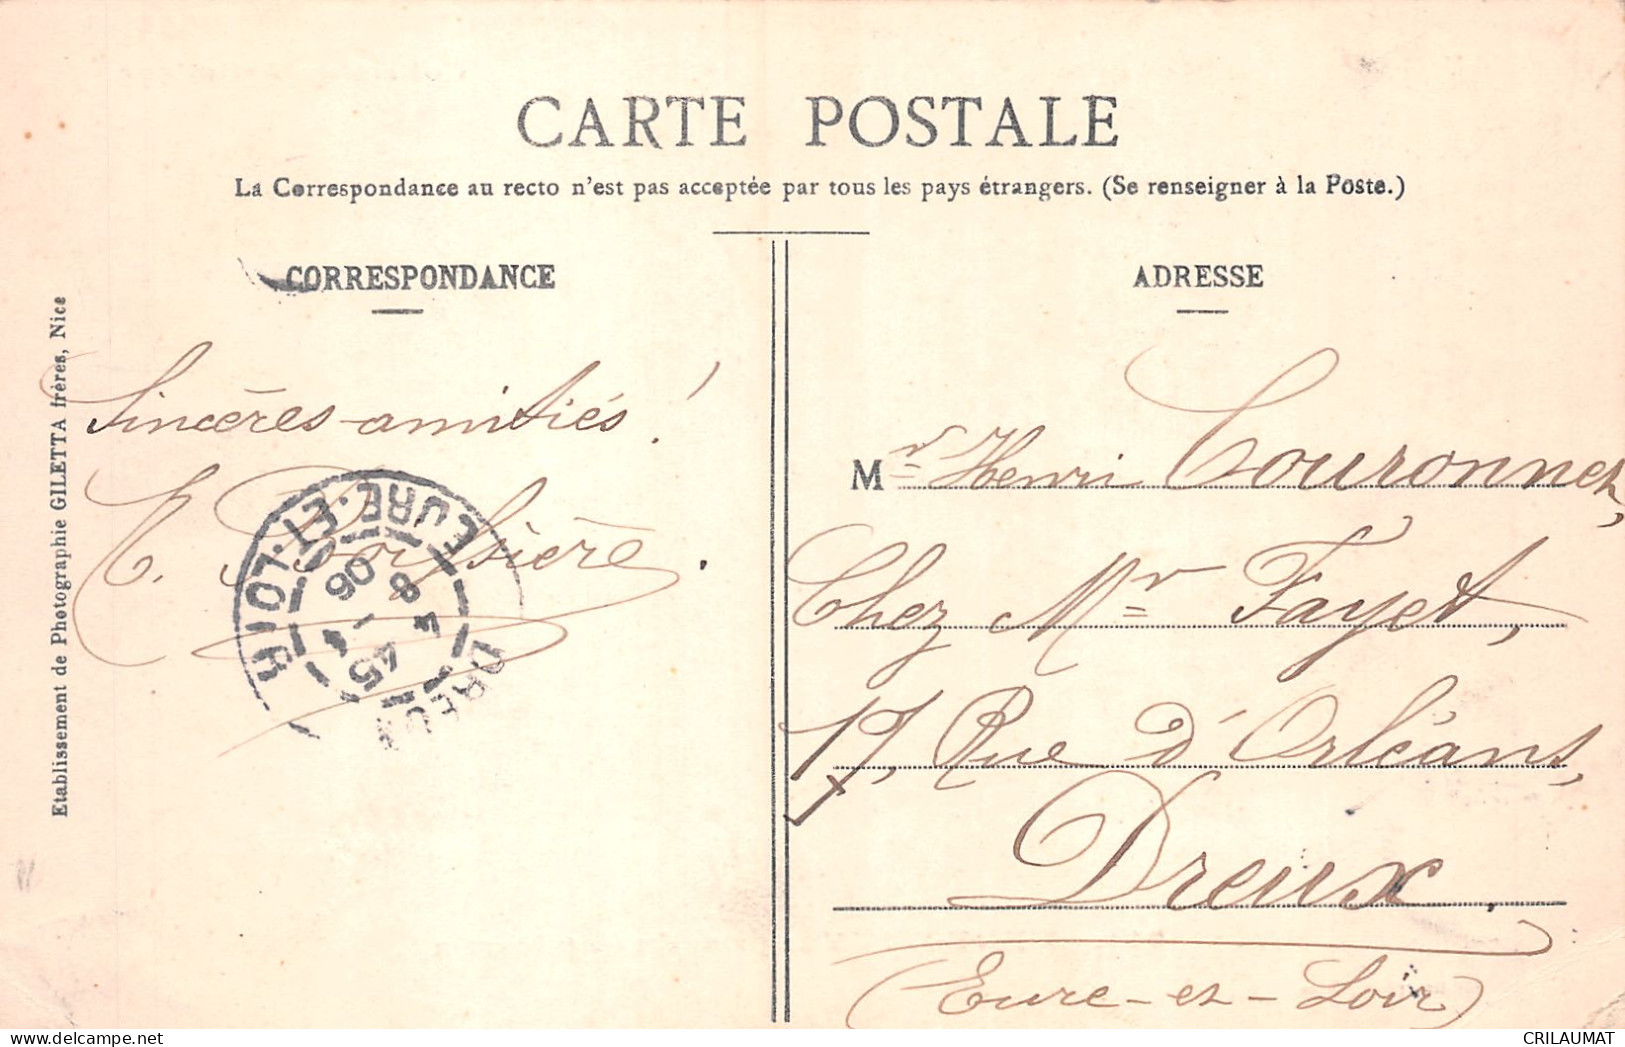 CARTE POSTALE
La Correspondance au recto n'est pas acceptée par tous les pays étrangers. (Se renseigner à la Poste.)
CORRESPONDANCE
Sincères amitiés!
ADRESSE
Mr Henri Couronnet,
Chez Mr Fayet,
17, Rue d'Orléans,
Dreux.
(Eure-et-Loir)
Etablissement de Photographie GILETTA frères, Nice
DREUX
EURE-ET-LOIR
4 45
4 - 8
06
CRILAUMAT